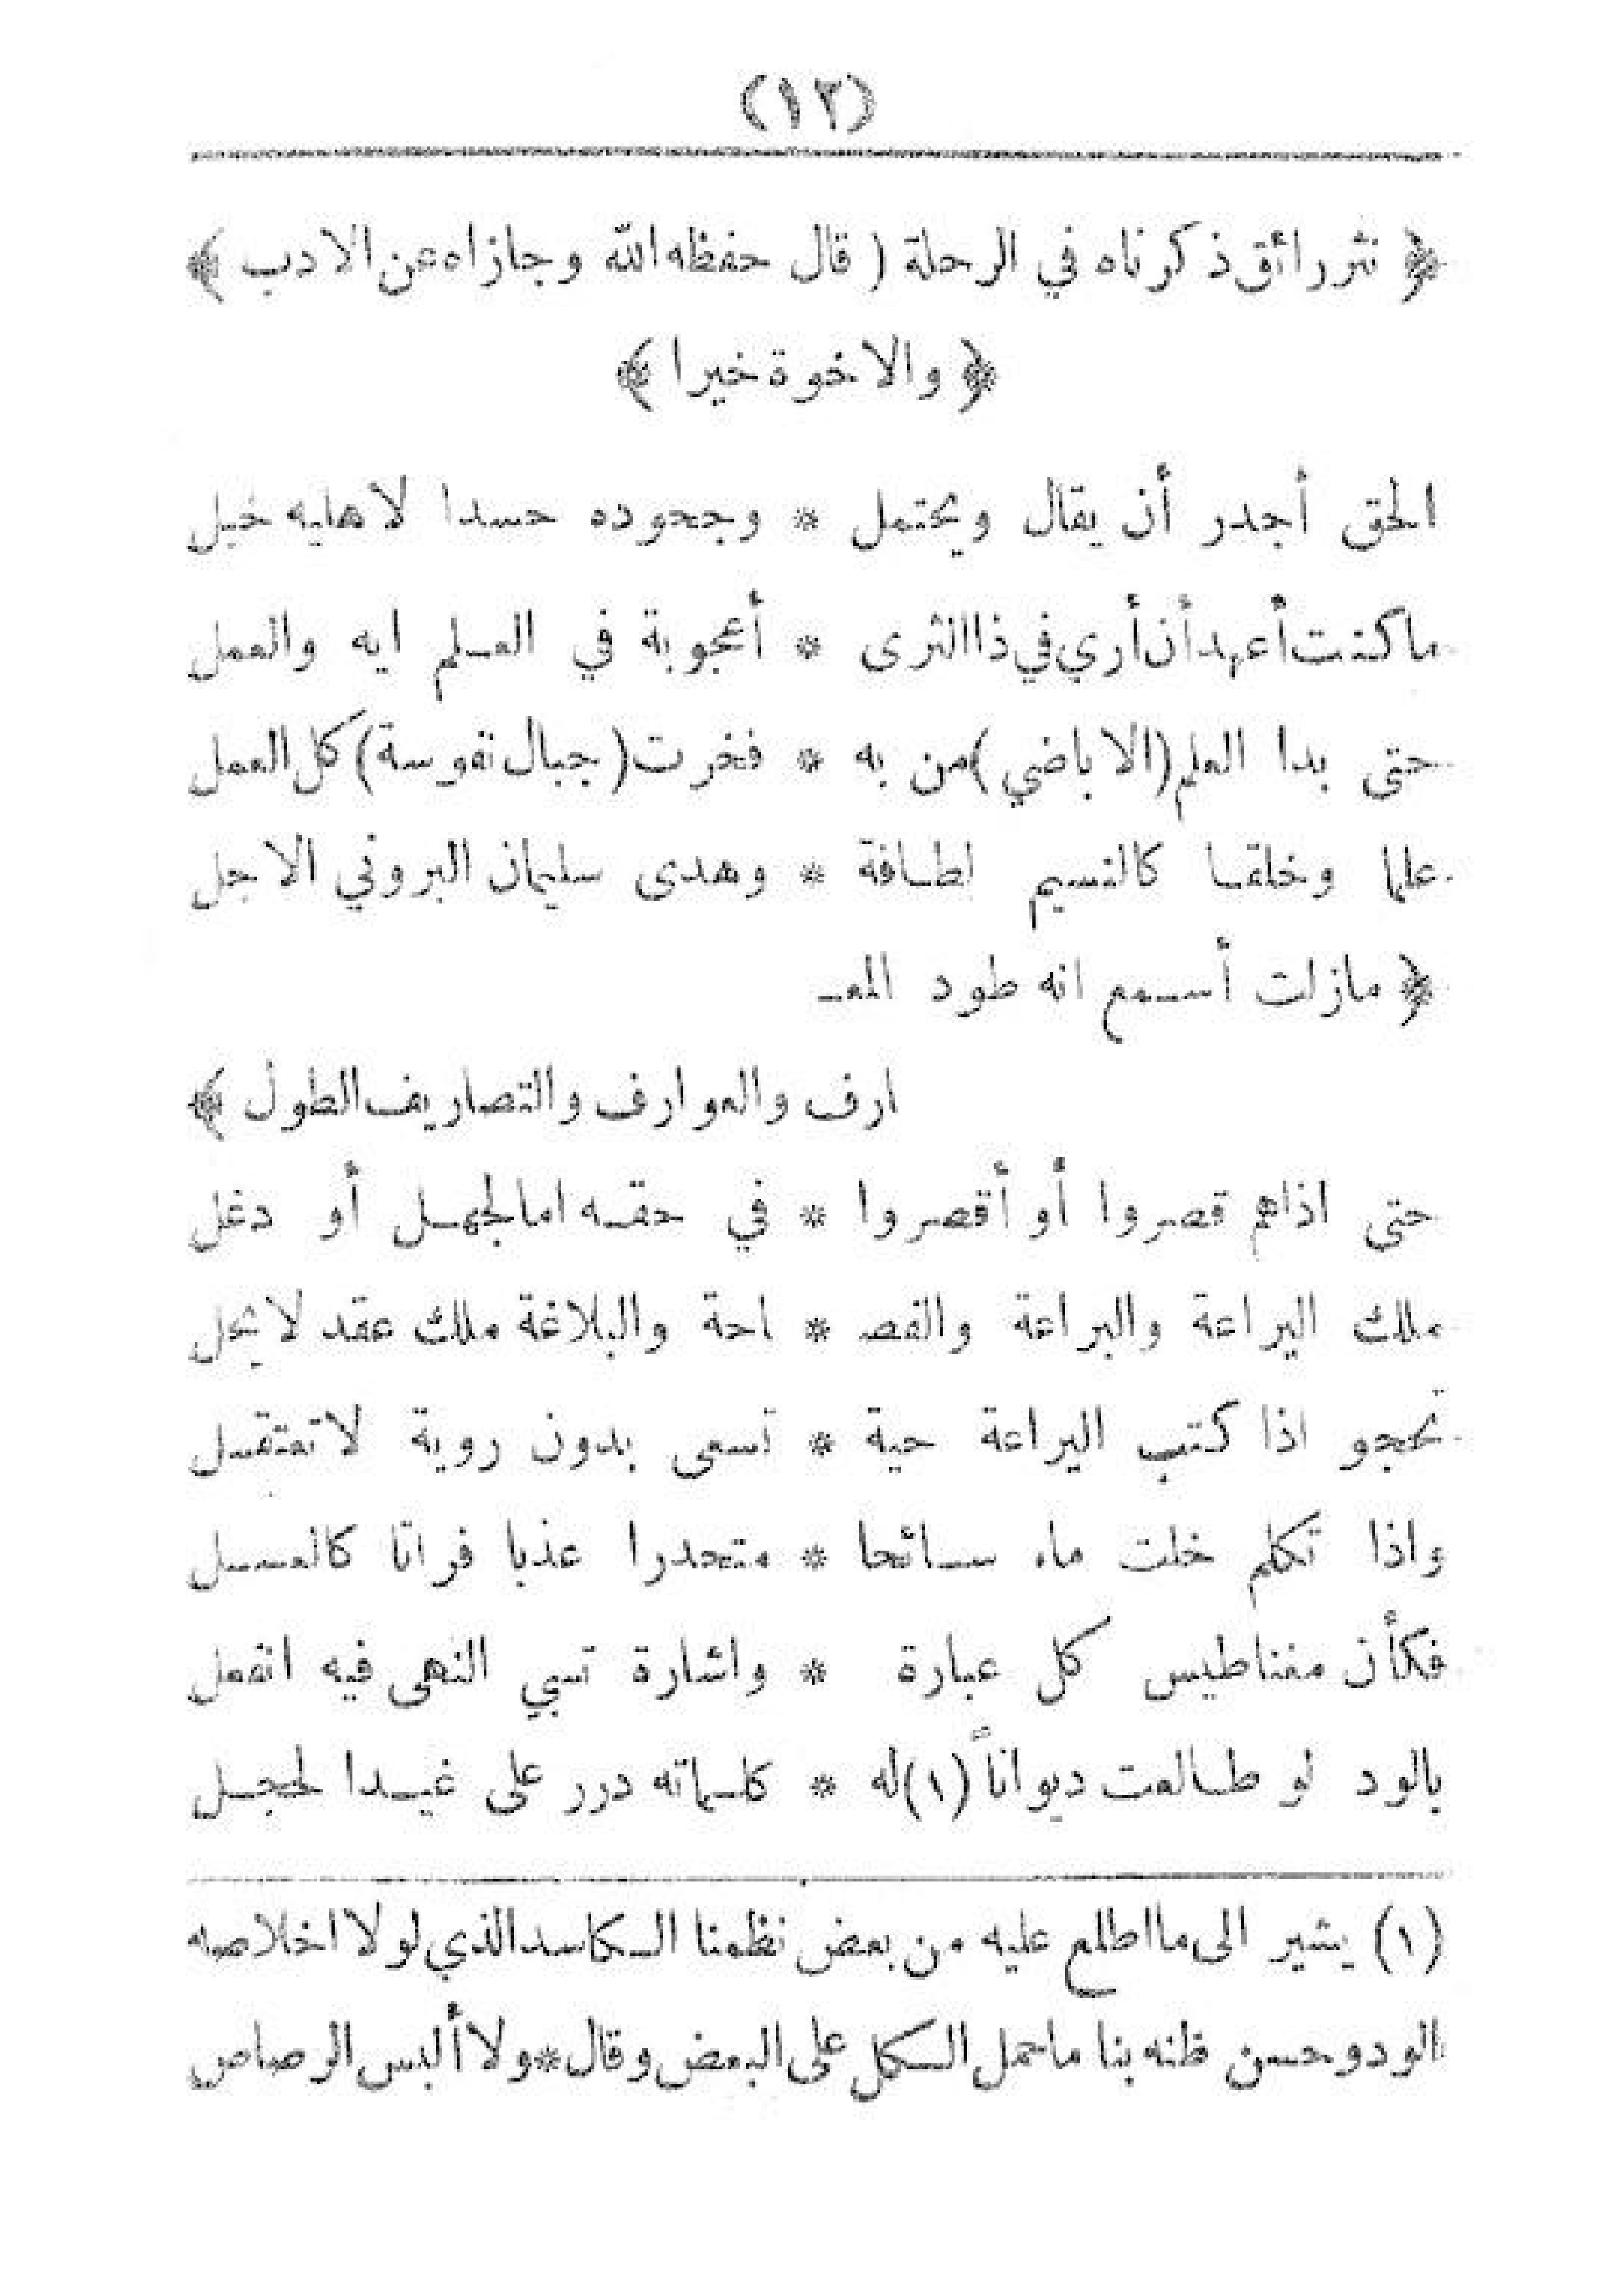 (١٢)
﴿ نثر رائق ذكرناه في الرحلة ( قال حفظه الله وجازاه عن الادب ﴾
﴿ والاخوة خيرا ﴾
الحق أجدر أن يقال ويحتمل * وجحوده حسدا لاهليه خبل
ما كنت أعهد أن أري في ذا الثرى * أعجوبة في العلم ايه والعمل
حتى بدا العلم (الاباضي) من به * فخرت (جبال نفوسة) كل العمل
علما وخلقا كالنسيم لطافة * وهدى سليمان البروني الاجل
﴿ مازلت أسمع انه طود المعـ
ارف والعوارف والتصاريف الطول ﴾
حتى اذا هم قصروا أو أقصروا * في حقه اما لجهل أو دغل
ملك اليراعة والبراعة والفصـ * احة والبلاغة ملك عقد لا يحل
تحجو اذا كتب اليراعة حية * تسعى بدون روية لا تعتقل
واذا تكلم خلت ماء سائحا * متحدرا عذبا فراتا كالعسل
فكأن مغناطيس كل عبارة * واشارة تسبي النهى فيه انفعل
بالود لو طالعت ديواناً (١) له * كلماته درر على غيدا لحجل
(١) يشير الى ما اطلع عليه من بعض نظمنا الكاسد الذي لولا اخلاصه
الود وحسن ظنه بنا ما حمل الكل على البعض وقال * ولا ألبس الرصاص